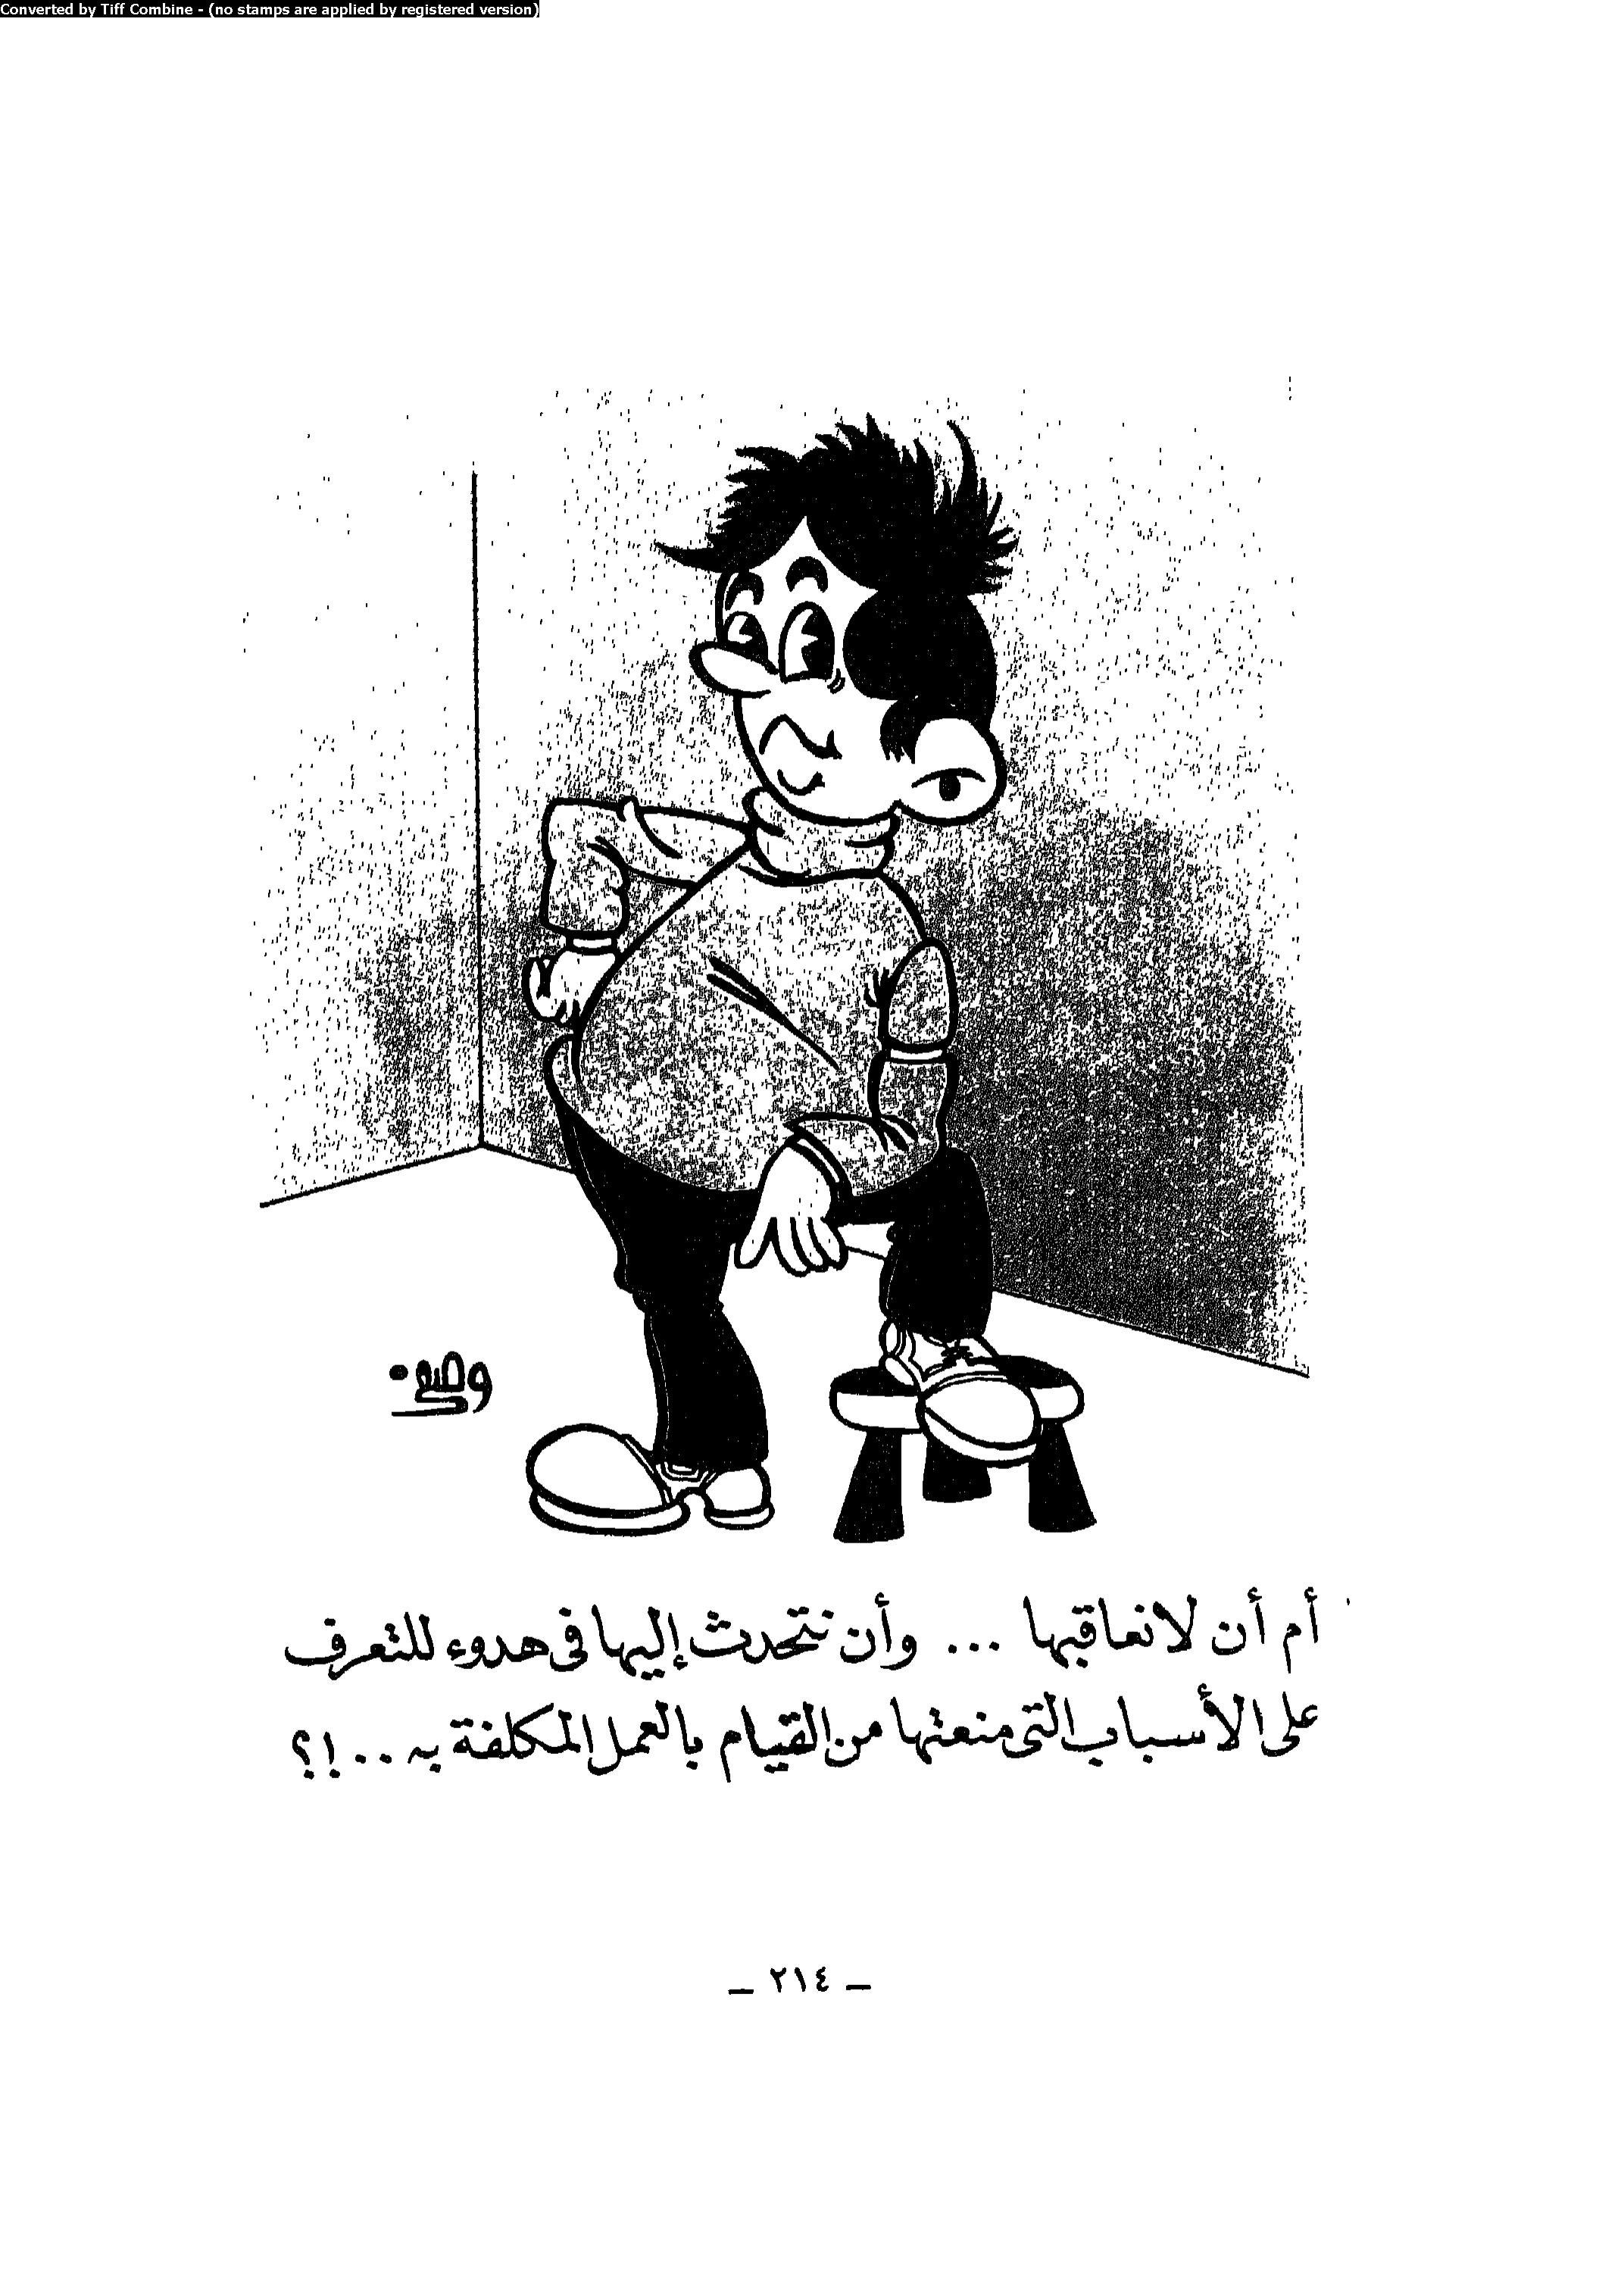 Converted by Tiff Combine - (no stamps are applied by registered version)
وصفى
أم أن لا نعاقبها ... وأن نتحدث إليها فى هدوء للتعرف
على الأسباب التى منعتها من القيام بالعمل المكلفة به ..!؟
ـ ٢١٤ ـ